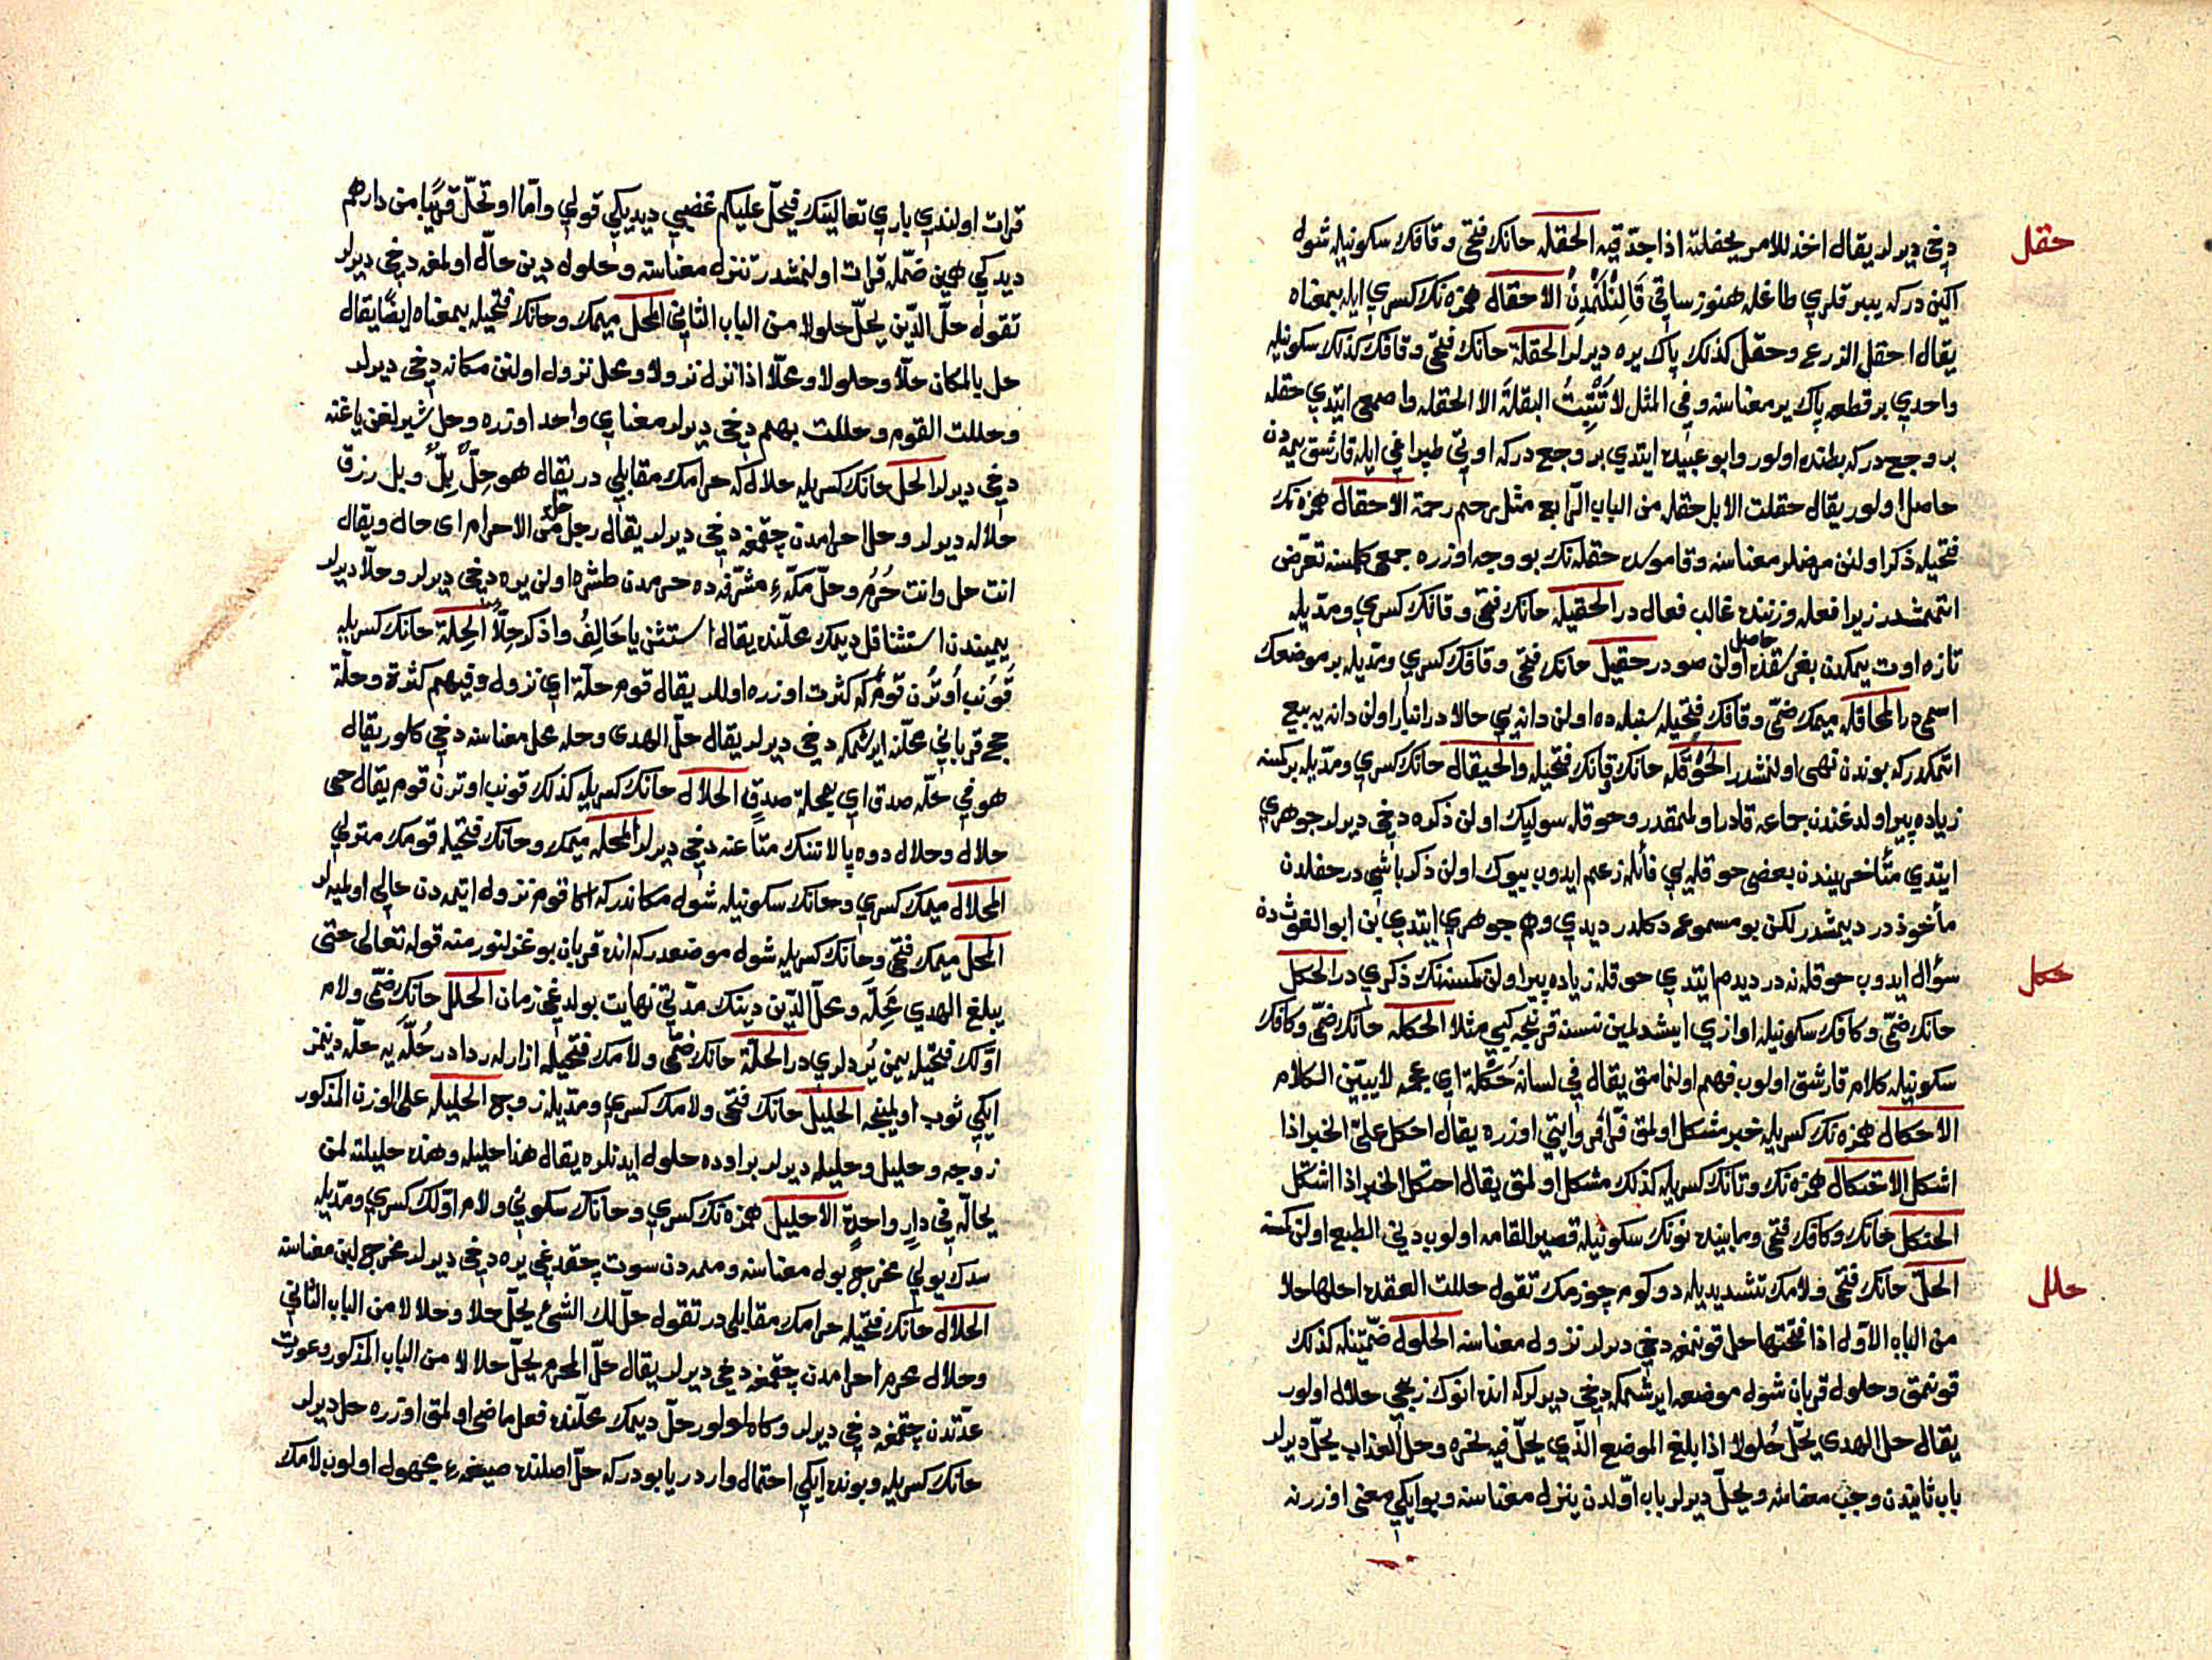 حقل
دخي ديرلر يقال اخذ للامر بحفلته اذا جدّ فيه الحقل حانك فتحى وقافك سكونيله شول
اكين دركه يپرقلري طاغله هنوز ساقي قالِنْلَنْمَدِنْ الاحقال همزه نك كسري ايله بمعناه
يقال احقل الزرع وحقل كذلك پاك يره ديرلر الحقلة حانك فتحى وقافك كذلك سكونيله
واحدي بر قطعه پاك ير معناسنه وفي المثل لا تُنْبِتُ البقلةَ الا الحقله واصمعي ايتدي حقله
بر وجع دركه بطنده اولور وابو عبيده ايتدي بر وجع دركه اوتي طپراغى ايله قارشق ييمه دن
حاصل اولور يقال حقلت الابل حقلة من الباب الرّابع مثل رحم رحمة الاحقال همزه نك
فتحيله ذكر اولنن مرضلر معناسنه وقاموسده حقله نك بو وجه اوزره جمعى كلمسنه تعرّض
ايتممشدر زيرا فعله وزننده غالب فعال در الحقيلة حانك فتحى وقافك كسري ومدّيله
تازه اوت ييمكدن بغرسقده حاصل اولن صودر حقيل حانك فتحى وقافك كسري ومدّيله بر موضعك
اسمى در المحاقلة ميمك ضمّى وقافك فتحيله سنبله ده اولن دانه يي حالا در انبار اولن دانه يه بيع
اتمكدركه بوندن نهى اولنمشدر الحَوْقَله حانك وقافك فتحيله والحيقال حانك كسري ومدّيله بر كمسنه
زياده پير اولدغندن جماعه قادر اولمقدر وحوقله سولپك اولن ذكره دخي ديرلر جوهري
ايتدي متأخريندن بعضى حوقله يي فائله زعم ايدوب بيوك اولن ذكر باشي در حفلدن
مأخوذدر ديمشدر لكن بو مسموعم دكلدر ديدي وهم جوهري ايتدي بن ابو الغوث دن
حكل
سؤال ايدوب حوقله نه در ديدم ايتدي حوقله زياده پير اولن كمسنه نك ذكري در الحكل
حانك ضمّى وكافك سكونيله اوازي ايشدلمين نسنه قرنجه كبي مثلا الحكله حانك ضمّى وكافك
سكونيله كلام قارشق اولوب فهم اولنمامق يقال في لسانه حُكلة اي عجمه لا يبيّن الكلام
الاحكال همزه نك كسريله خبر مشكل اولمق فرّأ روايتي اوزره يقال احكل عليّ الخبر اذا
اشكل الاحتكال همزه نك وتانك كسريله كذلك مشكل اولمق يقال احتكل الخبر اذا اشتكل
الحنكل حانك وكافك فتحى ومابينده نونك سكونيله قصير القامه اولوب دني الطبع اولن كمسنه
حلل
الحلّ حانك فتحى ولامك تشديديله دوكوم چوزمك تقول حللت العقده احلها حلا
من الباب الاول اذا فتحتها حل قونمغه دخي ديرلر نزول معناسنه الحلول ضمّتينله كذلك
قونمق وحلول قربان شول موضعه ايرشمكه دخي ديرلركه انده انوك ذبحى حلال اولور
يقال حل الهدى يحلّ حُلولا اذا بلغ الموضع الذّي يحلّ فيه نحره وحل العذاب يحلّ ديرلر
باب ثانيدن وجب معناسنه ويحلّ ديرلر باب اوّلدن ينزل معناسنه وبو ايكي معنى اوزرنه
قرات اولندي باري تعالينك فيحلّ عليكم غضبي ديديكي قولي وامّا او تحلّ قريبًا من دارهم
ديدكي همين ضمّله قرات اولنمشدر تنزل معناسنه وحلول دين حالّ اولمغه دخي ديرلر
تقول حلّ الدّين يحلّ حلولا من الباب الثاني المحل ميمك وحانك فتحيله بمعناه ايضًا يقال
حل بالمكان حلّا وحلولا ومحلّا اذا نزل نزولا ومحل نزول اولنن مكانه دخي ديرلر
وحللت القوم وحللت بهم دخي ديرلر معناي واحد اوزره وحل شيرلغن ياغنه
دخي ديرلر الحل حانك كسريله حلال كه حرامك مقابلي در يقال هو حِلٌّ بِلٌّ وبل رزق
حلاله ديرلر وحل احرامدن چقمغه دخي ديرلر يقال رجل حل من الاحرام اي حال ويقال
انت حل وانت حُرُم وحلّ مكّهء مشرّفه ده حرمدن طشره اولن يره دخي ديرلر وحلّا ديرلر
يميندن استثنا قل ديمك محلّنده يقال استثنى يا حَالِفُ واذكر حِلّاً الحِلة حانك كسريله
قُونُب اُوتُرن قَومُ كه كثرت اوزره اوللر يقال قوم حلّة اي نزول وفيهم كثرة وحلّة
حج قرباني محلّنه ايرشمكه دخي ديرلر يقال حلّ الهدى وحله محل معناسنه دخي كلور يقال
هو في حلّه صدق اي بمحلة صدقٍ الحلال حانك كسريله كذلك قونب اوترن قوم يقال حى
حلال وحلال دوه پالاننك متاعنه دخي ديرلر المحله ميمك وحانك فتحيله قومك منزلي
المحلال ميمك كسري وحانك سكونيله شول مكاندركه اكا قوم نزول ايتمه دن خالي اولميه لر
المحل ميمك فتحى وحانك كسريله شول موضعدركه انده قربان بوغزلنور منه قوله تعالى حتى
يبلغ الهدي مَحِلّه ومحلّ الدّين دينك مدّتي نهايت بولدغي زمان الحلل حانك ضمّى ولام
اوّلك فتحيله يمن بُرْدلري در الحلّة حانك ضمّى ولامك فتحيله ازارله ردادر حُلّه يه حلّه دينمز
ايكي ثوب اولمينجه الحليل حانك فتحى ولامك كسري ومدّيله زوج الحليلة على الوزن المذكور
زوجه وحليل وحليله ديرلر بر اوده حلول ايدنلره يقال هذا حليله وهذه حليلته لمن
يحالّه في دارٍ واحدةٍ الاحليل همزه نك كسري وحانك سكوني ولام اوّلك كسري ومدّيله
سدك يولي مخرج بول معناسنه وممه دن سوت چقدغي يره دخي ديرلر مخرج لبن معناسنه
الحلال حانك فتحيله حرامك مقابلي در تقول حلّ لك الشئ يحلّ حلا وحلالا من الباب الثّاني
وحلال محرم احرامدن چقمغه دخي ديرلر يقال حلّ المحرم يحلّ حلالا من الباب المذكور وعورت
عدّتدن چقمغه دخي ديرلر وكاه اولور حلّ ديمك محلّنده فعل ماضى اولمق اوزره حل ديرلر
حانك كسريله وبونده ايكي احتمال وار در يا بودركه حلّ اصلنده صيغهء مجهول اولوب لامك